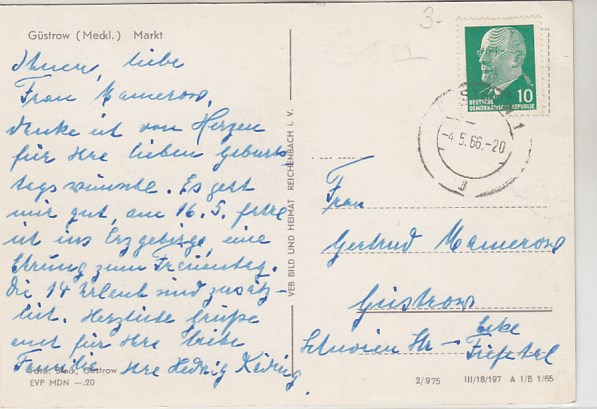 Güstrow (Meckl.) Markt
Ihnen, liebe
Frau Mamerow,
danke ich von Herzen
für Ihre lieben Geburts
tagswünsche. Es geht
mir gut, am 16. 5. fahre
ich ins Erzgebirge, eine
Ehrung zum Frauentag.
Die 14 Urlaub sind zusätz-
lich. Herzliche Grüße
auch für Ihre liebe
Familie Ihre Hedwig
Foto: Beck, Güstrow
EVP MDN —.20
VEB BILD UND HEIMAT REICHENBACH i. V.
3.-
10
DEUTSCHE
DEMOKRATISCHE REPUBLIK
-4.5.66.-20
1
Frau
Gertrud Mamerow
Güstrow
Schwein Str - Ecke
2/975 III/18/197 A 1/B 1/65